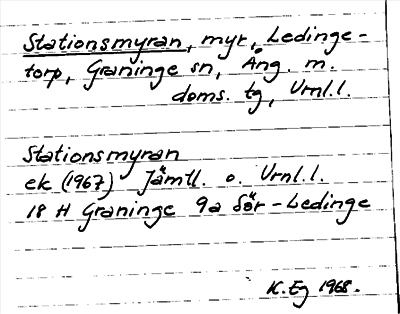 Stationsmyran, myr, Ledinge-
torp, Graninge sn, Ång. m.
doms. tg, Vrnl.l.
Stationsmyran
ek (1967) Jämtl. o. Vrnl.l.
18 H Graninge 9a Sör-Ledinge
K. Eg 1968.